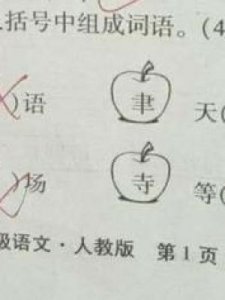 .括号中组成词语。(4
)语 聿 天(
)场 寺 等(
级语文·人教版 第1页